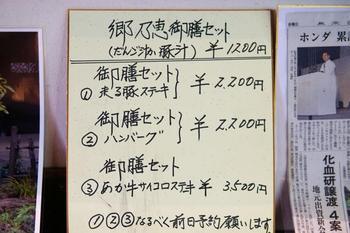 郷乃恵御膳セット
(だんご汁か豚汁) ￥1200円
御膳セット
①走る豚ステーキ } ￥2,200円
御膳セット
②ハンバーグ } ￥2,200円
御膳セット
③あか牛サイコロステキ ￥3,500円
①②③なるべく前日予約願います
ホンダ 累
化血研譲渡 4案
地元出資新